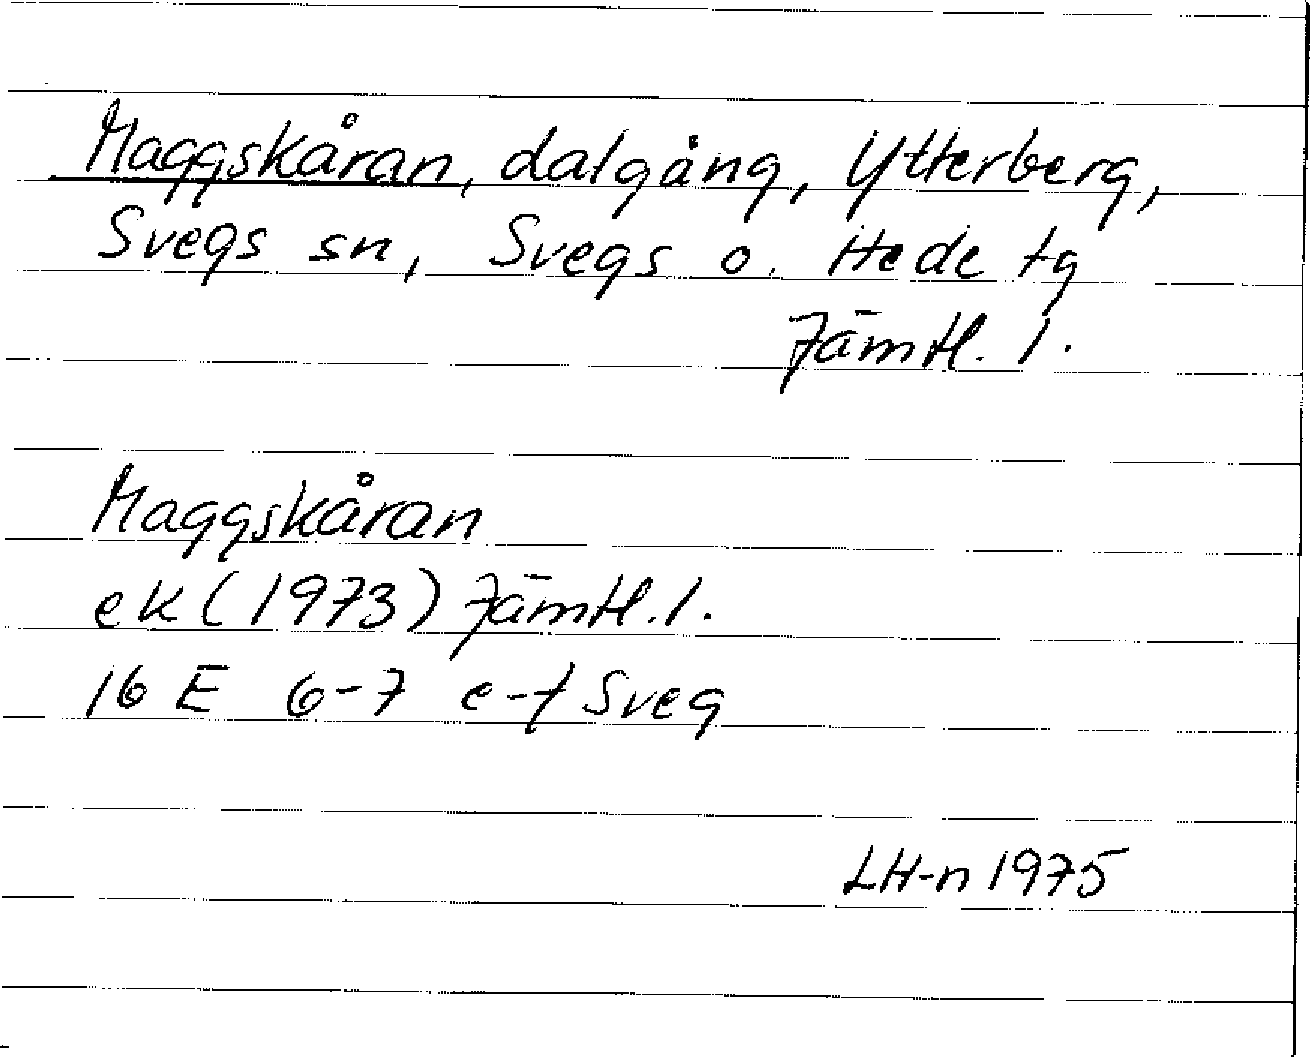 Maggskåran, dalgång, Ytterberg,
Svegs sn, Svegs o. Hede tg
Jämtl. l.
Maggskåran
ek (1973) Jämtl. l.
16 E 6-7 e-f Sveg
LH-n 1975